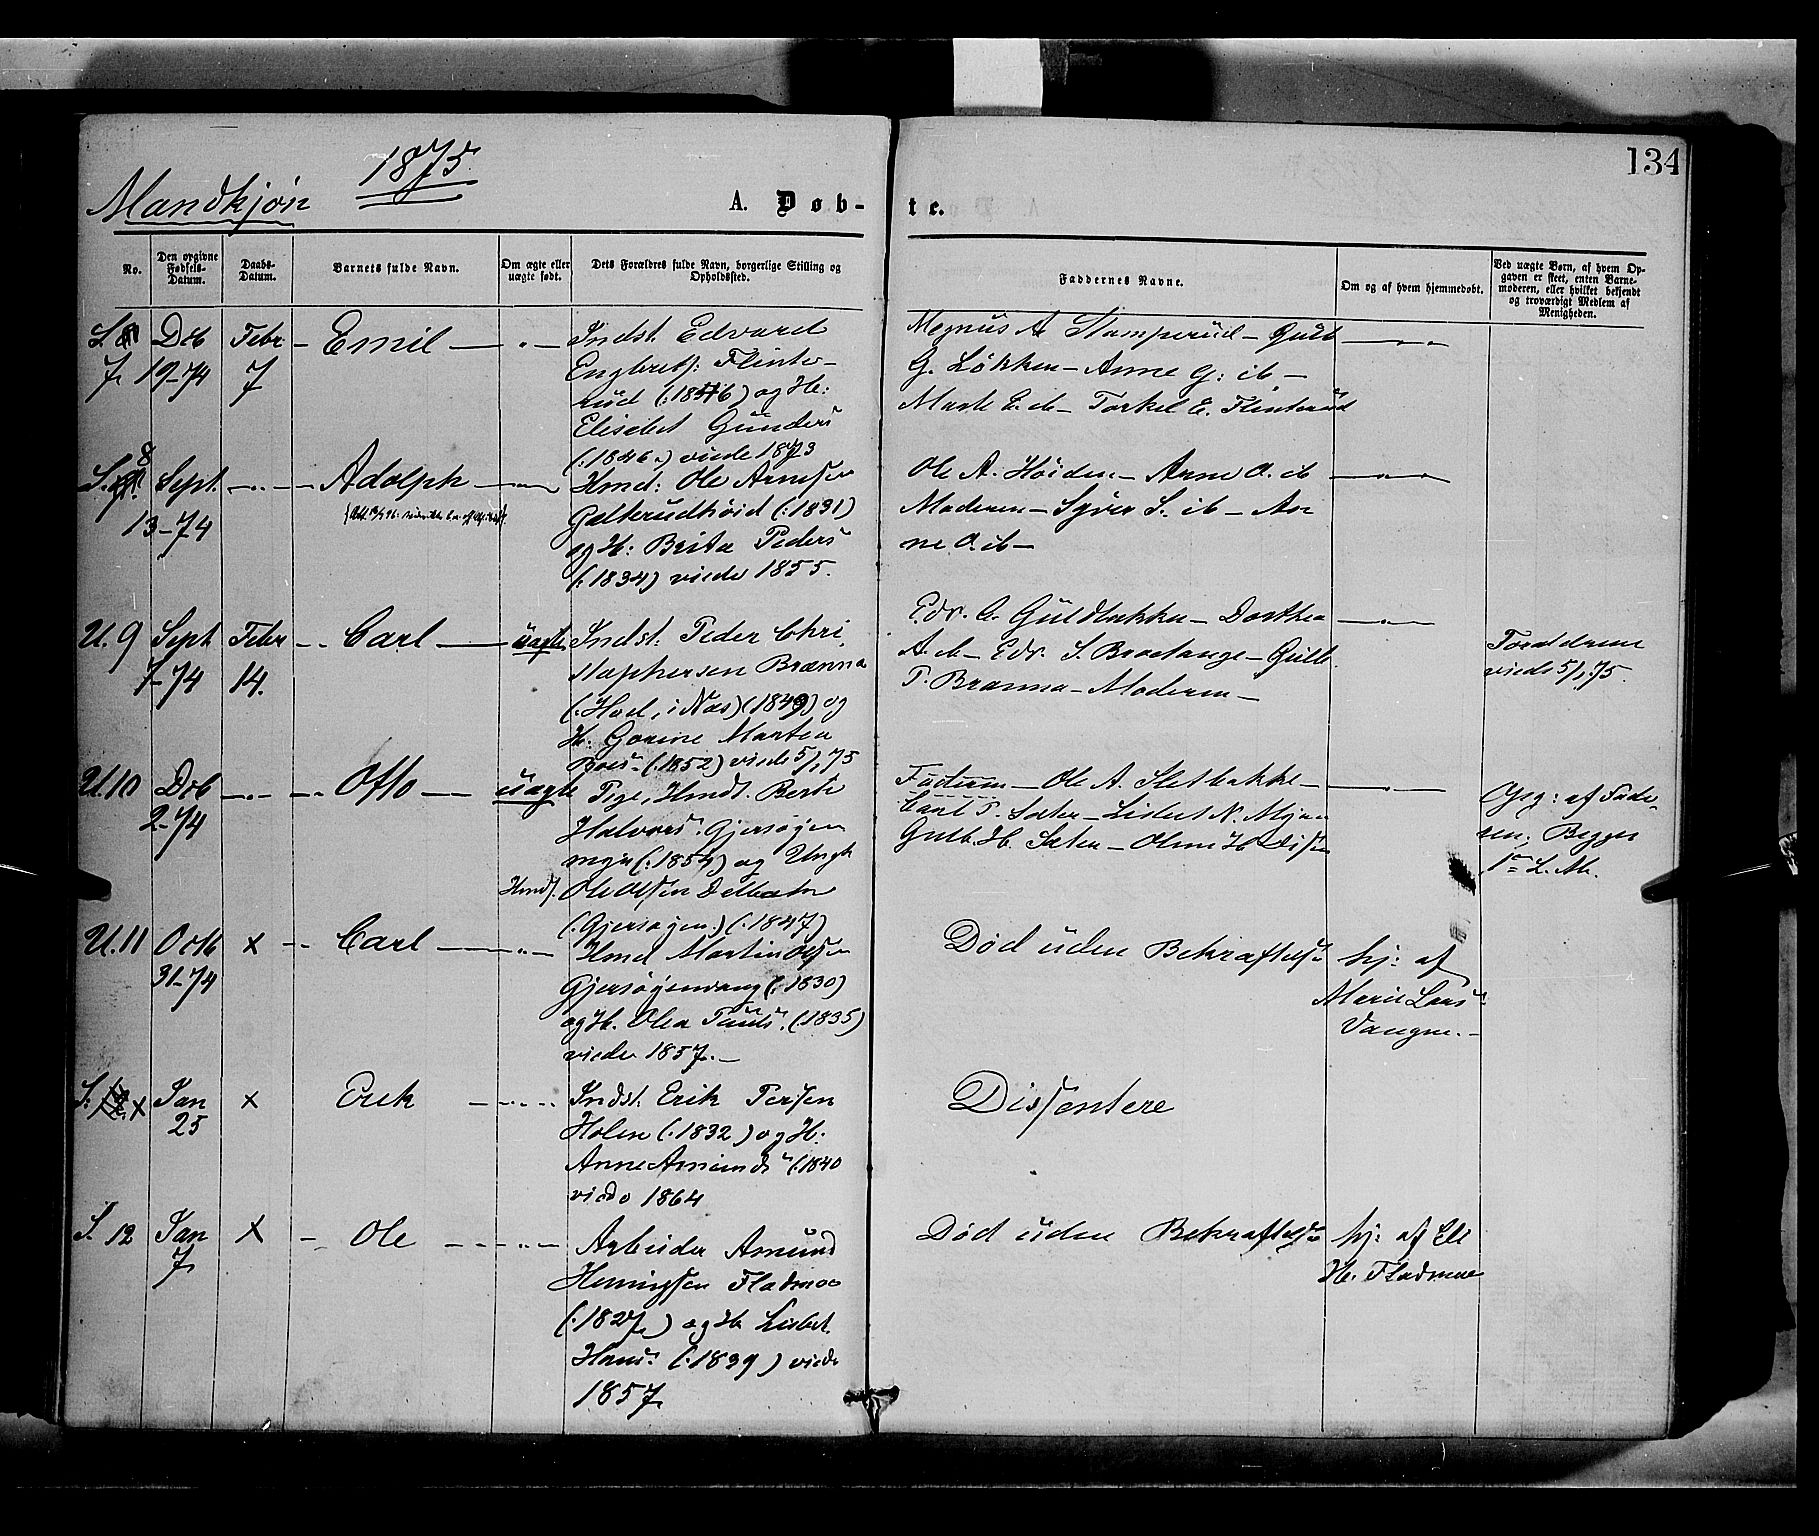 1875.
134
Mandkjøn
A. Døb-
te.
No.
Den opgivne Fødsels-Datum.
Daabs-Datum.
Barnets fulde Navn.
Om ægte eller uægte født.
Dets Forældres fulde Navn, borgerlige Stilling og Opholdssted.
Faddernes Navne.
Om og af hvem hjemmedøbt.
Ved uægte Børn, af hvem Opgaven er skeet, enten Barnemoderen, eller hvilket bekjendt og troværdigt Medlem af Menigheden.
7. Dcb 19-74 Febr 7 Emil
Indst. Edvard
Engbrets: Flinte-
rud og H:
Elisabet Gunders
(:1846.) viede 1873
Magnus A Stamperud - Gulb
G. Løkken - Anne G: ib -
Marte E. ib - Torkel E. Flinterud
S. 8 Sept. 13-74 Adolph
Hmd: Ole Arnesen
Galterudhøid (:1831)
og H: Brita Peders
(:1834) viede 1855.
Ole A. Høiden - Anne O. ib
Moderen - Syver S. ib - An
ne O. ib -
U. 9 Sept 7-74 Febr 14. Carl uægte
Indst. Peder Chri
stophersen Brænna
(: i Næs) (1849) og
H: Gorine Martea
(:1852) viede 5/1 75
Edv. C. Guldbakke - Dorthea
A. ib - Edv. S. - Gulb.
P. Brænna - Moderen -
Forældrene
viede 5/1 75.
U. 10 Dcb 2-74 Otto uægte
Pige, Hmdt. Berte
Halvors. Gjersøgen
(:1854) og Ungk
Hmds. Ole Olsen
(:Gjersøgen:) (:1847)
Faderen - Ole A. Sletbakke -
Carl P. Sæter - Lisbet N.
Gulb. H. Sæter - H.
Opg: af Fade-
ren, Begges
1ste L. M.
U. 11 Octb 31-74 x Carl
Hmd Martin Olsen
Gjersøgenvang (:1830)
og H. Olea Pauls. (:1835)
viede 1857. -
Død uden Bekræftelse
hj: af
Marie Lars
Vangen. -
S. x Jan 25 x Erik
Indst. Erik Persen
Holen (:1832) og H:
Anne Amunds (:1840
viede 1864
Dissentere
S. 12 Jan 7 x Ole
Arbeider Amund
Hemingsen Fladmoe
(:1827) og H. Lisbet
Hans: (:1839) viede
1857
Død uden Bekræftelse
hj: af Eli
H. Fladmoe